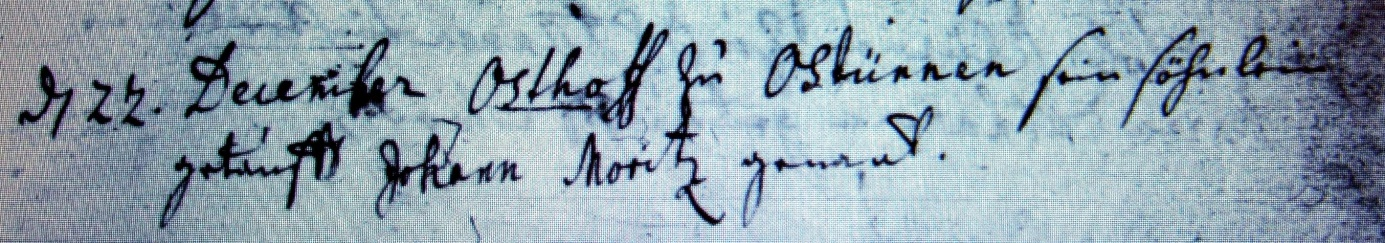 d 22. December Osthoff zu Ostünnen sein söhnlein
getaufft Johann Moritz genant.